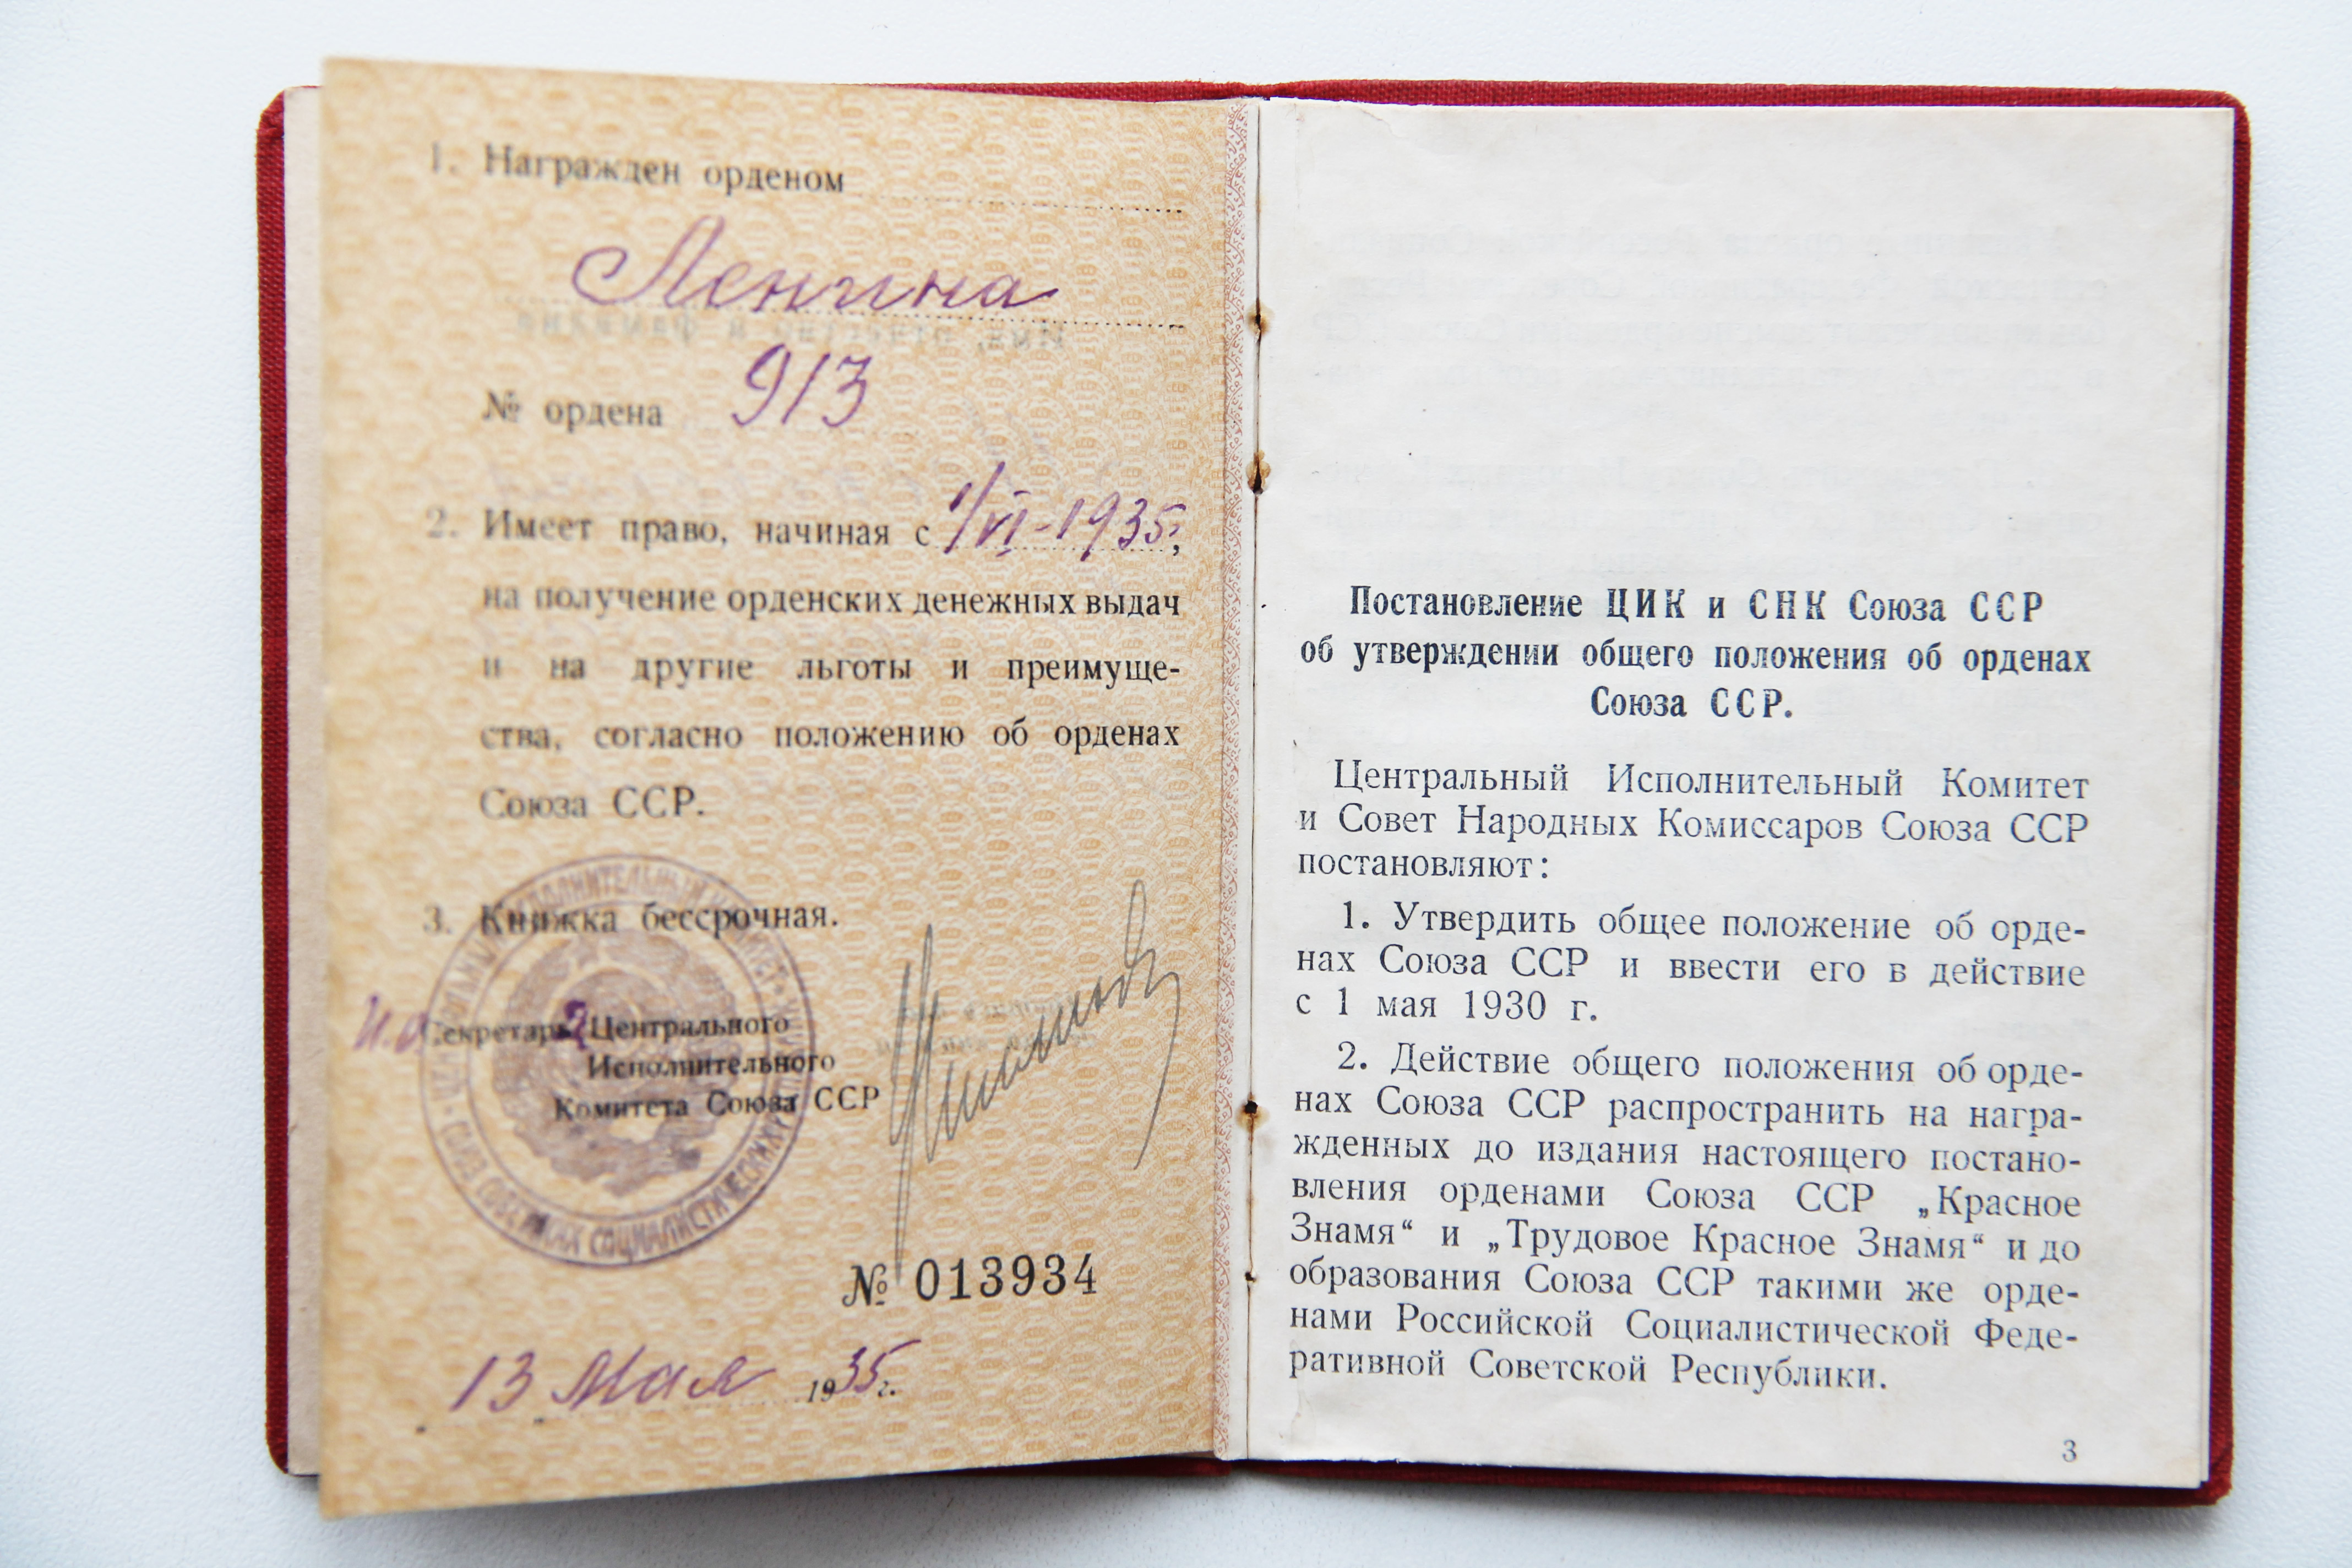 1. Награжден орденом
Ленина
№ ордена 913
2. Имеет право, начиная с 1/VI-1935,
на получение орденских денежных выдач
и на другие льготы и преимуще-
ства, согласно положению об орденах
Союза ССР.
3. Книжка бессрочная.
И.о. Секретаря Центрального
Исполнительного
Комитета Союза ССР
№ 013934
13 Мая 1935 г.
Постановление ЦИК и СНК Союза ССР
об утверждении общего положения об орденах
Союза ССР.
Центральный Исполнительный Комитет
и Совет Народных Комиссаров Союза ССР
постановляют:
1. Утвердить общее положение об орде-
нах Союза ССР и ввести его в действие
с 1 мая 1930 г.
2. Действие общего положения об орде-
нах Союза ССР распространить на награ-
жденных до издания настоящего постано-
вления орденами Союза ССР „Красное
Знамя“ и „Трудовое Красное Знамя“ и до
образования Союза ССР такими же орде-
нами Российской Социалистической Феде-
ративной Советской Республики.
3